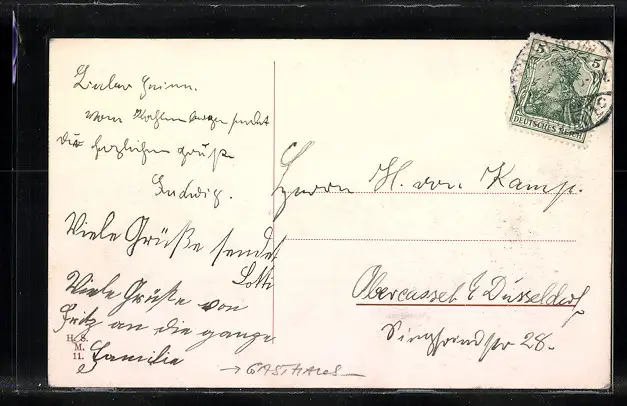 Lieber Heini.
vom sendet
dir herzlichen Gruß
Ludwig.
Viele Grüße sendet
Lotti
Viele Grüße von
Fritz an die ganze
Familie
H. S.
M.
11.
→ GASTHAUS
5 5
DEUTSCHES REICH
Herrn H. von Kamp.
Obercassel b/ Düsseldorf
28.